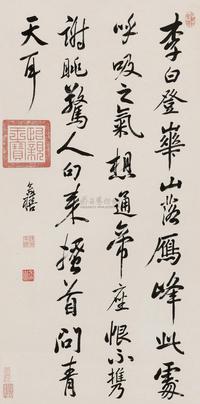 李白登華山落雁峰此處
呼吸之氣想通帝座恨不攜
謝眺驚人句来搔首問青
天耳